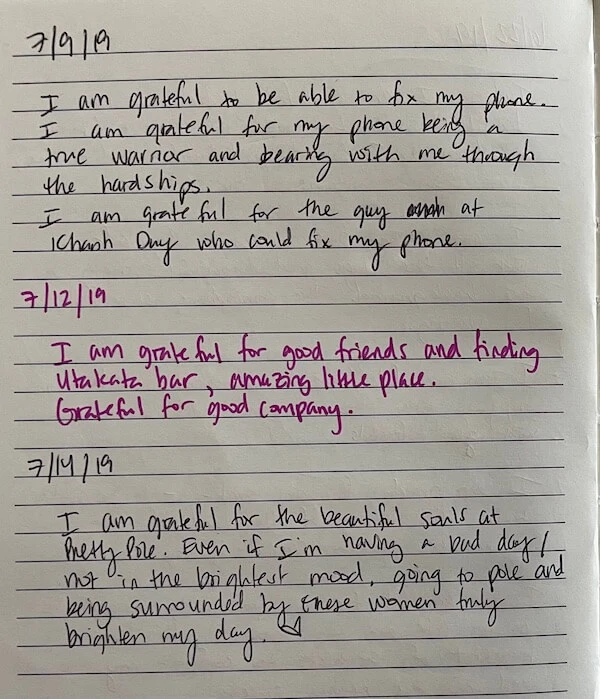 7/9/19
I am grateful to be able to fix my phone.
I am grateful for my phone being a
true warrior and bearing with me through
the hardships.
I am grateful for the guy at
Khanh Duy who could fix my phone.
7/12/19
I am grateful for good friends and finding
Utakata bar, amazing little place.
Grateful for good company.
7/14/19
I am grateful for the beautiful souls at
Pretty Pole. Even if I'm having a bad day/
not in the brightest mood, going to pole and
being surrounded by these women truly
brighten my day.